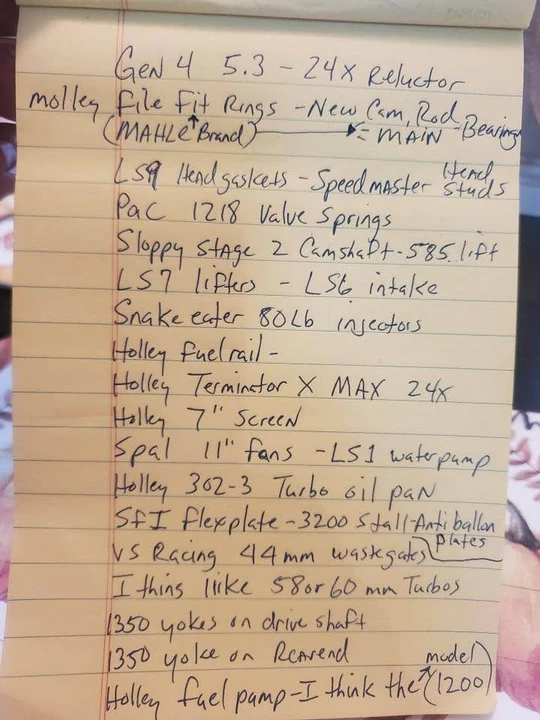 Gen 4 5.3 - 24x Reluctor
molley file Fit Rings - New Cam, Rod
(MAHLE Brand) → = MAIN - Bearings
LS9 Head gaskets - Speedmaster Head Studs
PAC 1218 Valve Springs
Sloppy Stage 2 Camshaft - 585. lift
LS7 lifters - LS6 intake
Snake eater 80Lb injectors
Holley Fuel rail -
Holley Terminator X MAX 24x
Holley 7" Screen
Spal 11" fans - LS1 water pump
Holley 302-3 Turbo oil pan
SFI flexplate - 3200 Stall - Anti ballon plates
VS Racing 44mm wastegates
I thins like 58 or 60 mm Turbos
1350 yokes on drive shaft
1350 yoke on Rearend
Holley fuel pump - I think the (1200) model